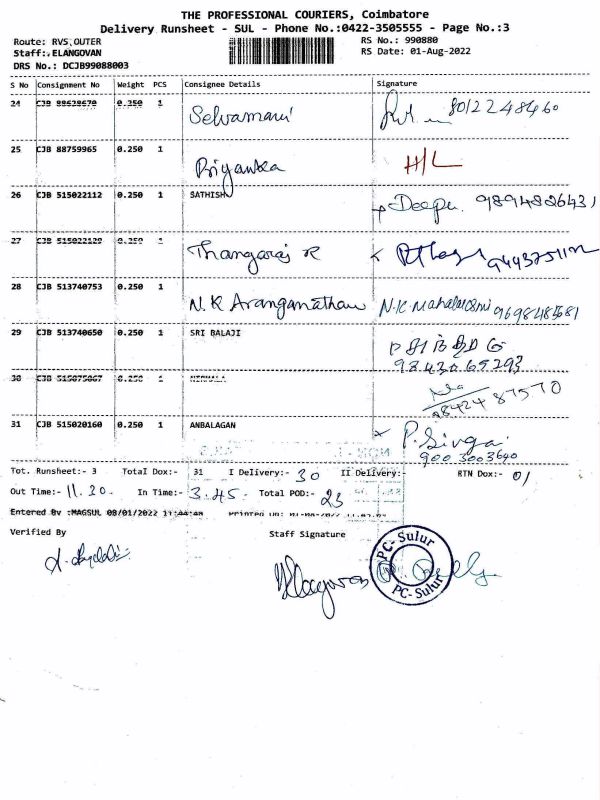 THE PROFESSIONAL COURIERS, Coimbatore
Delivery Runsheet - SUL - Phone No.:0422-3505555 - Page No.:3
Route: RVS,OUTER
RS No.: 990880
Staff:.ELANGOVAN
RS Date: 01-Aug-2022
DRS No.: DCJB99088003
S No Consignment No Weight PCS Consignee Details Signature
24 CJB 88628670 0.250 1 Selvamani 8012248460
25 CJB 88759965 0.250 1 Priyanka H/L
26 CJB 515022112 0.250 1 SATHISH Deepu. 9894826431
27 CJB 515022129 0.250 1 Thangaraj R
28 CJB 513740753 0.250 1 N.K Aranganathan N.K. Mahalakshmi
29 CJB 513740650 0.250 1 SRI BALAJI
9843065293
30 CJB 515075067 0.250 1 NIRMALA
9842487570
31 CJB 515020160 0.250 1 ANBALAGAN P. Sivga
9003003640
Tot. Runsheet:- 3 Total Dox:- 31 I Delivery:- 30 II Delivery:- RTN Dox:- 01
Out Time:- 11.20. In Time:- 3.45. Total POD:- 23
Entered By :MAGSUL 08/01/2022 11:44:48 Printed On:
Verified By Staff Signature
PC-Sulur
PC-Sulur